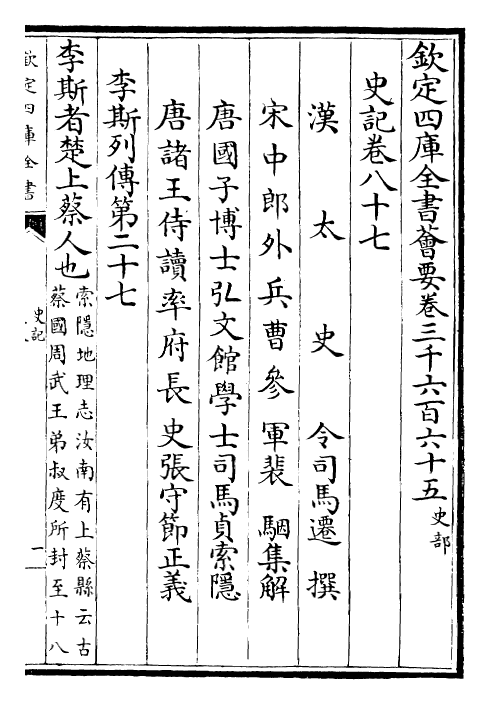 欽定四庫全書薈要卷三千六百六十五 史部
史記卷八十七
漢太史令司馬遷撰
宋中郎外兵曹參軍裴駰集解
唐國子博士弘文館學士司馬貞索隱
唐諸王侍讀率府長史張守節正義
李斯列傳第二十七
李斯者楚上蔡人也
索隱地理志汝南有上蔡縣云古
蔡國周武王弟叔度所封至十八
欽定四庫全書
史記
一